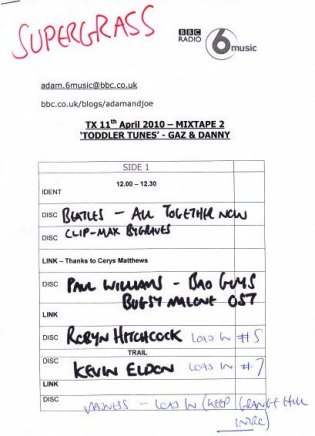 SUPERGRASS
BBC
RADIO
6
music
adam.6music@bbc.co.uk
bbc.co.uk/blogs/adamandjoe
TX 11th April 2010 – MIXTAPE 2
'TODDLER TUNES' - GAZ & DANNY
SIDE 1
12.00 – 12.30
IDENT
DISC BEATLES – ALL TOGETHER NOW
DISC CLIP-MAX BYGRAVES
LINK – Thanks to Cerys Matthews
DISC PAUL WILLIAMS – BAD GUYS
BUGSY MALONE OST
LINK
DISC ROBYN HITCHCOCK LOAD IN #5
TRAIL
DISC KEVIN ELDON LOAD IN #7
LINK
DISC MADNESS – LOAD IN (KEEP GRANGE HILL
INTRO)